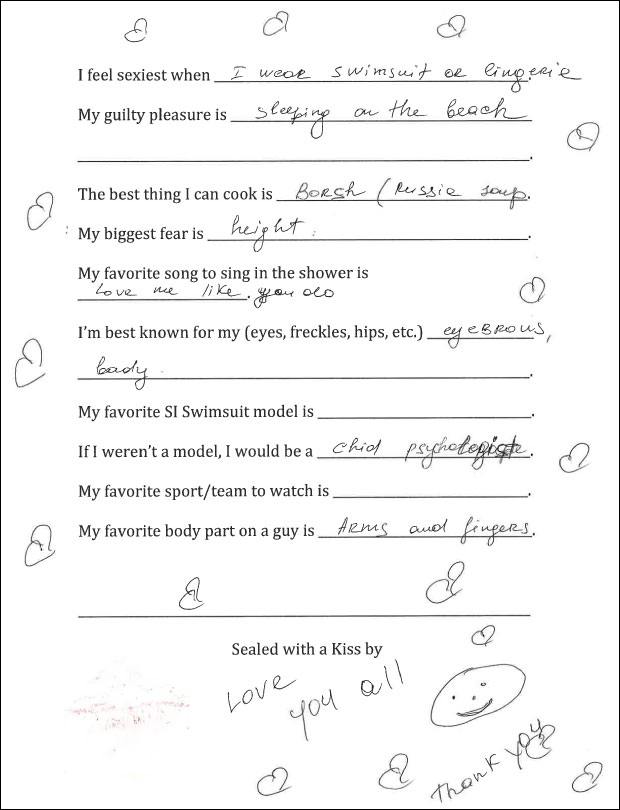 I feel sexiest when I wear swimsuit or lingerie
My guilty pleasure is sleeping on the beach
.
The best thing I can cook is Borsh (Russie soup.
My biggest fear is height.
My favorite song to sing in the shower is
Love me like you do.
I'm best known for my (eyes, freckles, hips, etc.) eyeBROWS,
body.
My favorite SI Swimsuit model is .
If I weren't a model, I would be a chid psychologist.
My favorite sport/team to watch is .
My favorite body part on a guy is ARMS and fingers.
Sealed with a Kiss by
Love you all
thank you